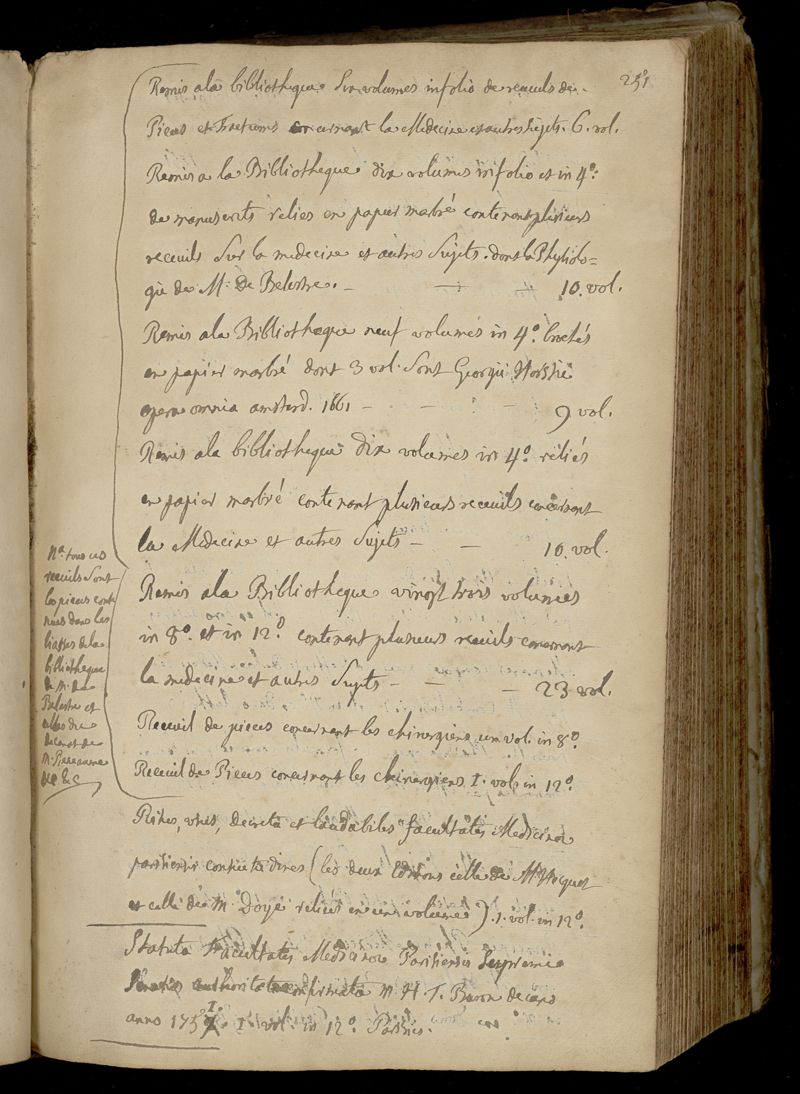 251
Remis ala bibliotheque Six volumes infolio de receuils de
Pieces et Factums concernant la Medecine et autres Sujets. 6. vol.
Remis a la Bibliotheque dix volumes infolio et in 4º.
de manuscrits relies en papier marbré contenant plusieurs
receuils Sur la medecine et autres Sujets. dont la Physiolo=
gie de M. De Belestre. - 10. vol.
Remis ala Bibliotheque neuf volumes in 4º. brochés
en papier marbré dont 3 vol. Sont Georgii Horstii
opera omnia amsterd. 1661 - 9 vol.
Remis ala bibliotheque dix volumes in 4º. reliés
en papier marbré contenant plusieurs receuils concernant
la Medecine et autres Sujets - - 10. vol.
Remis ala Bibliotheque vingt trois volumes
in 8º. et in 12º. contenant plusieurs receuils concernant
la medecine et autres Sujets - - - 23 vol.
Receuil de pieces concernant les chirurgiens un vol. in 8º.
Receuil de Pieces concernant les chirurgiens 1. vol. in 12º.
Ritus, usus, Decreta et laudabiles facultatis Medicinæ
parisiensis consuetudines (les deux Editions celle de M. Hecquet
et celle de M. Doye reliés en un volume). 1. vol. in 12º.
Statuta Facultatis Medicinæ Parisiensis Supremi
Senatus authoritate confirmata M. H. T. Baron decano
anno 1751. 1. vol. in 12º. Parisiis.
Nª. tous ces
receuils Sont
les pieces conte
nues dans les
liasses de la
bibliotheque
de M. de
Belestre et
celles du
decanat de
M.
&c &c